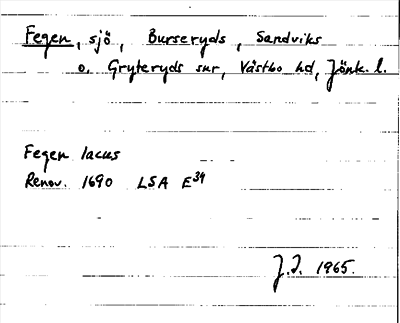 Fegen, sjö, Burseryds, Sandviks
o. Gryteryds snr, Västbo hd, Jönk. l.
Fegen lacus
Renov. 1690 LSA E34
J.I. 1965.